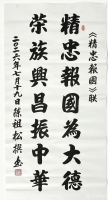 《精忠報國》联
精忠報國為大德
荣族興昌振中華
二〇二六年七月十九日陈祖松撰書